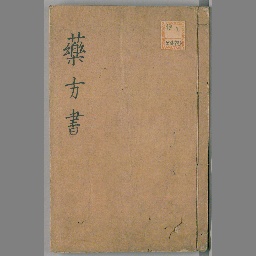 藥方書